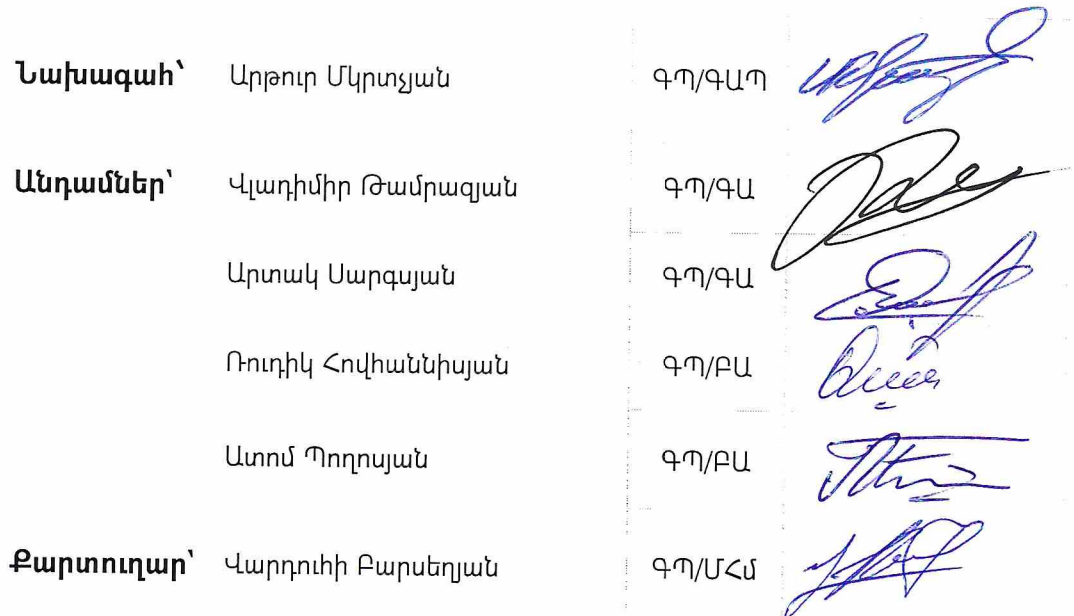 Նախագահ՝ Արթուր Մկրտչյան ԳՊ/ԳԱՊ
Անդամներ՝ Վլադիմիր Թամրազյան ԳՊ/ԳԱ
Արտակ Սարգսյան ԳՊ/ԳԱ
Ռուդիկ Հովհաննիսյան ԳՊ/ԲԱ
Ատոմ Պողոսյան ԳՊ/ԲԱ
Քարտուղար՝ Վարդուհի Բարսեղյան ԳՊ/ՄՀմ